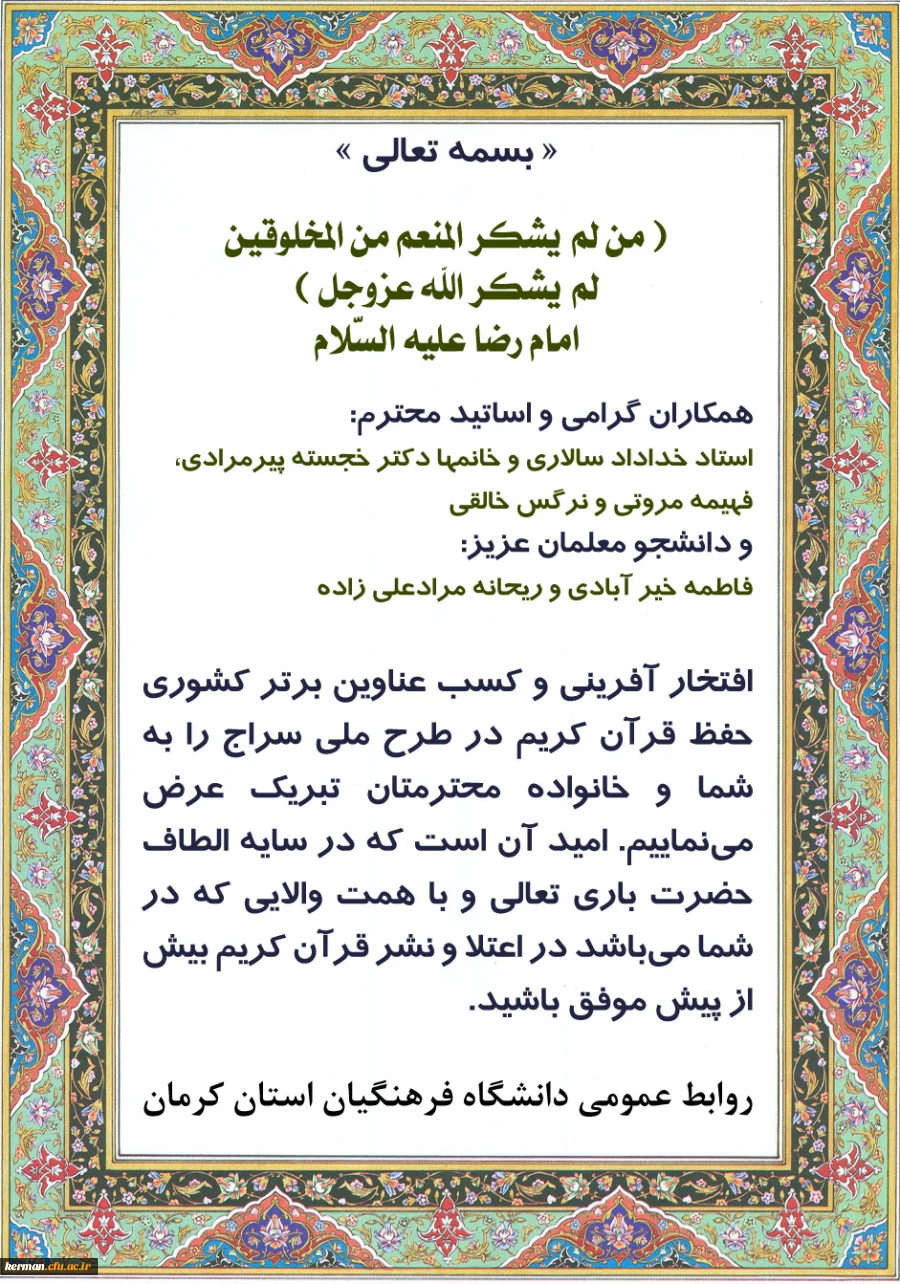 « بسمه تعالی »
( من لم یشکر المنعم من المخلوقین
لم یشکر الله عزوجل )
امام رضا علیه السّلام
همکاران گرامی و اساتید محترم:
استاد خداداد سالاری و خانمها دکتر خجسته پیرمرادی،
فهیمه مروتی و نرگس خالقی
و دانشجو معلمان عزیز:
فاطمه خیر آبادی و ریحانه مرادعلی زاده
افتخار آفرینی و کسب عناوین برتر کشوری
حفظ قرآن کریم در طرح ملی سراج را به
شما و خانواده محترمتان تبریک عرض
می‌نماییم. امید آن است که در سایه الطاف
حضرت باری تعالی و با همت والایی که در
شما می‌باشد در اعتلا و نشر قرآن کریم بیش
از پیش موفق باشید.
روابط عمومی دانشگاه فرهنگیان استان کرمان
kerman.cfu.ac.ir